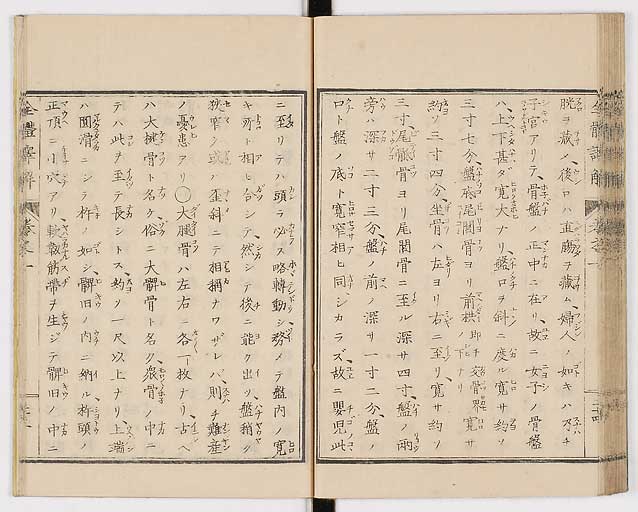 胱ヲ藏メ、後ロハ直腸ヲ藏ム、婦人ノ如キハ則チ
子宮アリテ、骨盤ノ正中ニ在リ、故ニ女子ノ骨盤
ハ、上下甚ダ寛大ナリ、盤口ヲ斜ニ度ル寛サ約ソ
三寸七分、盤底尾閭骨ヨリ前拱即チ交骨界ノ下ナリ寛サ
約ソ三寸四分、坐骨ハ左ヨリ右ニ至リ寛サ約ソ
三寸、尾骶骨ヨリ尾閭骨ニ至ル深サ四寸、盤ノ兩
旁ハ深サ二寸三分、盤ノ前ノ深サ一寸二分、盤ノ
口ト盤ノ底ト寛窄相ヒ同シカラズ、故ニ嬰児此
ニ至リテハ頭ラ必ス略轉動シ務メテ盤内ノ寛
キ所ト相ヒ合シテ、然シテ後ニ能ク出ツ、盤稍ク
狹窄ク或ハ歪斜ニテ相稱ナワザレハ、則チ難産
ノ憂患アリ〇大腿骨ハ左右ニ各一枚ナリ、古ヘ
ハ大揵骨ト名ク、俗ニ大髀骨ト名ク、衆骨ノ中ニ
テハ此ヲ至テ長シトス、約ソ一尺以上ナリ、上端
ハ圓滑ニシテ杵ノ如シ、髀臼ノ内ニ納ル、杵頭ノ
正頂ニ小穴アリ、軟靱筋帶ヲ生ジテ髀臼ノ中ニ
全體譯解　卷之一